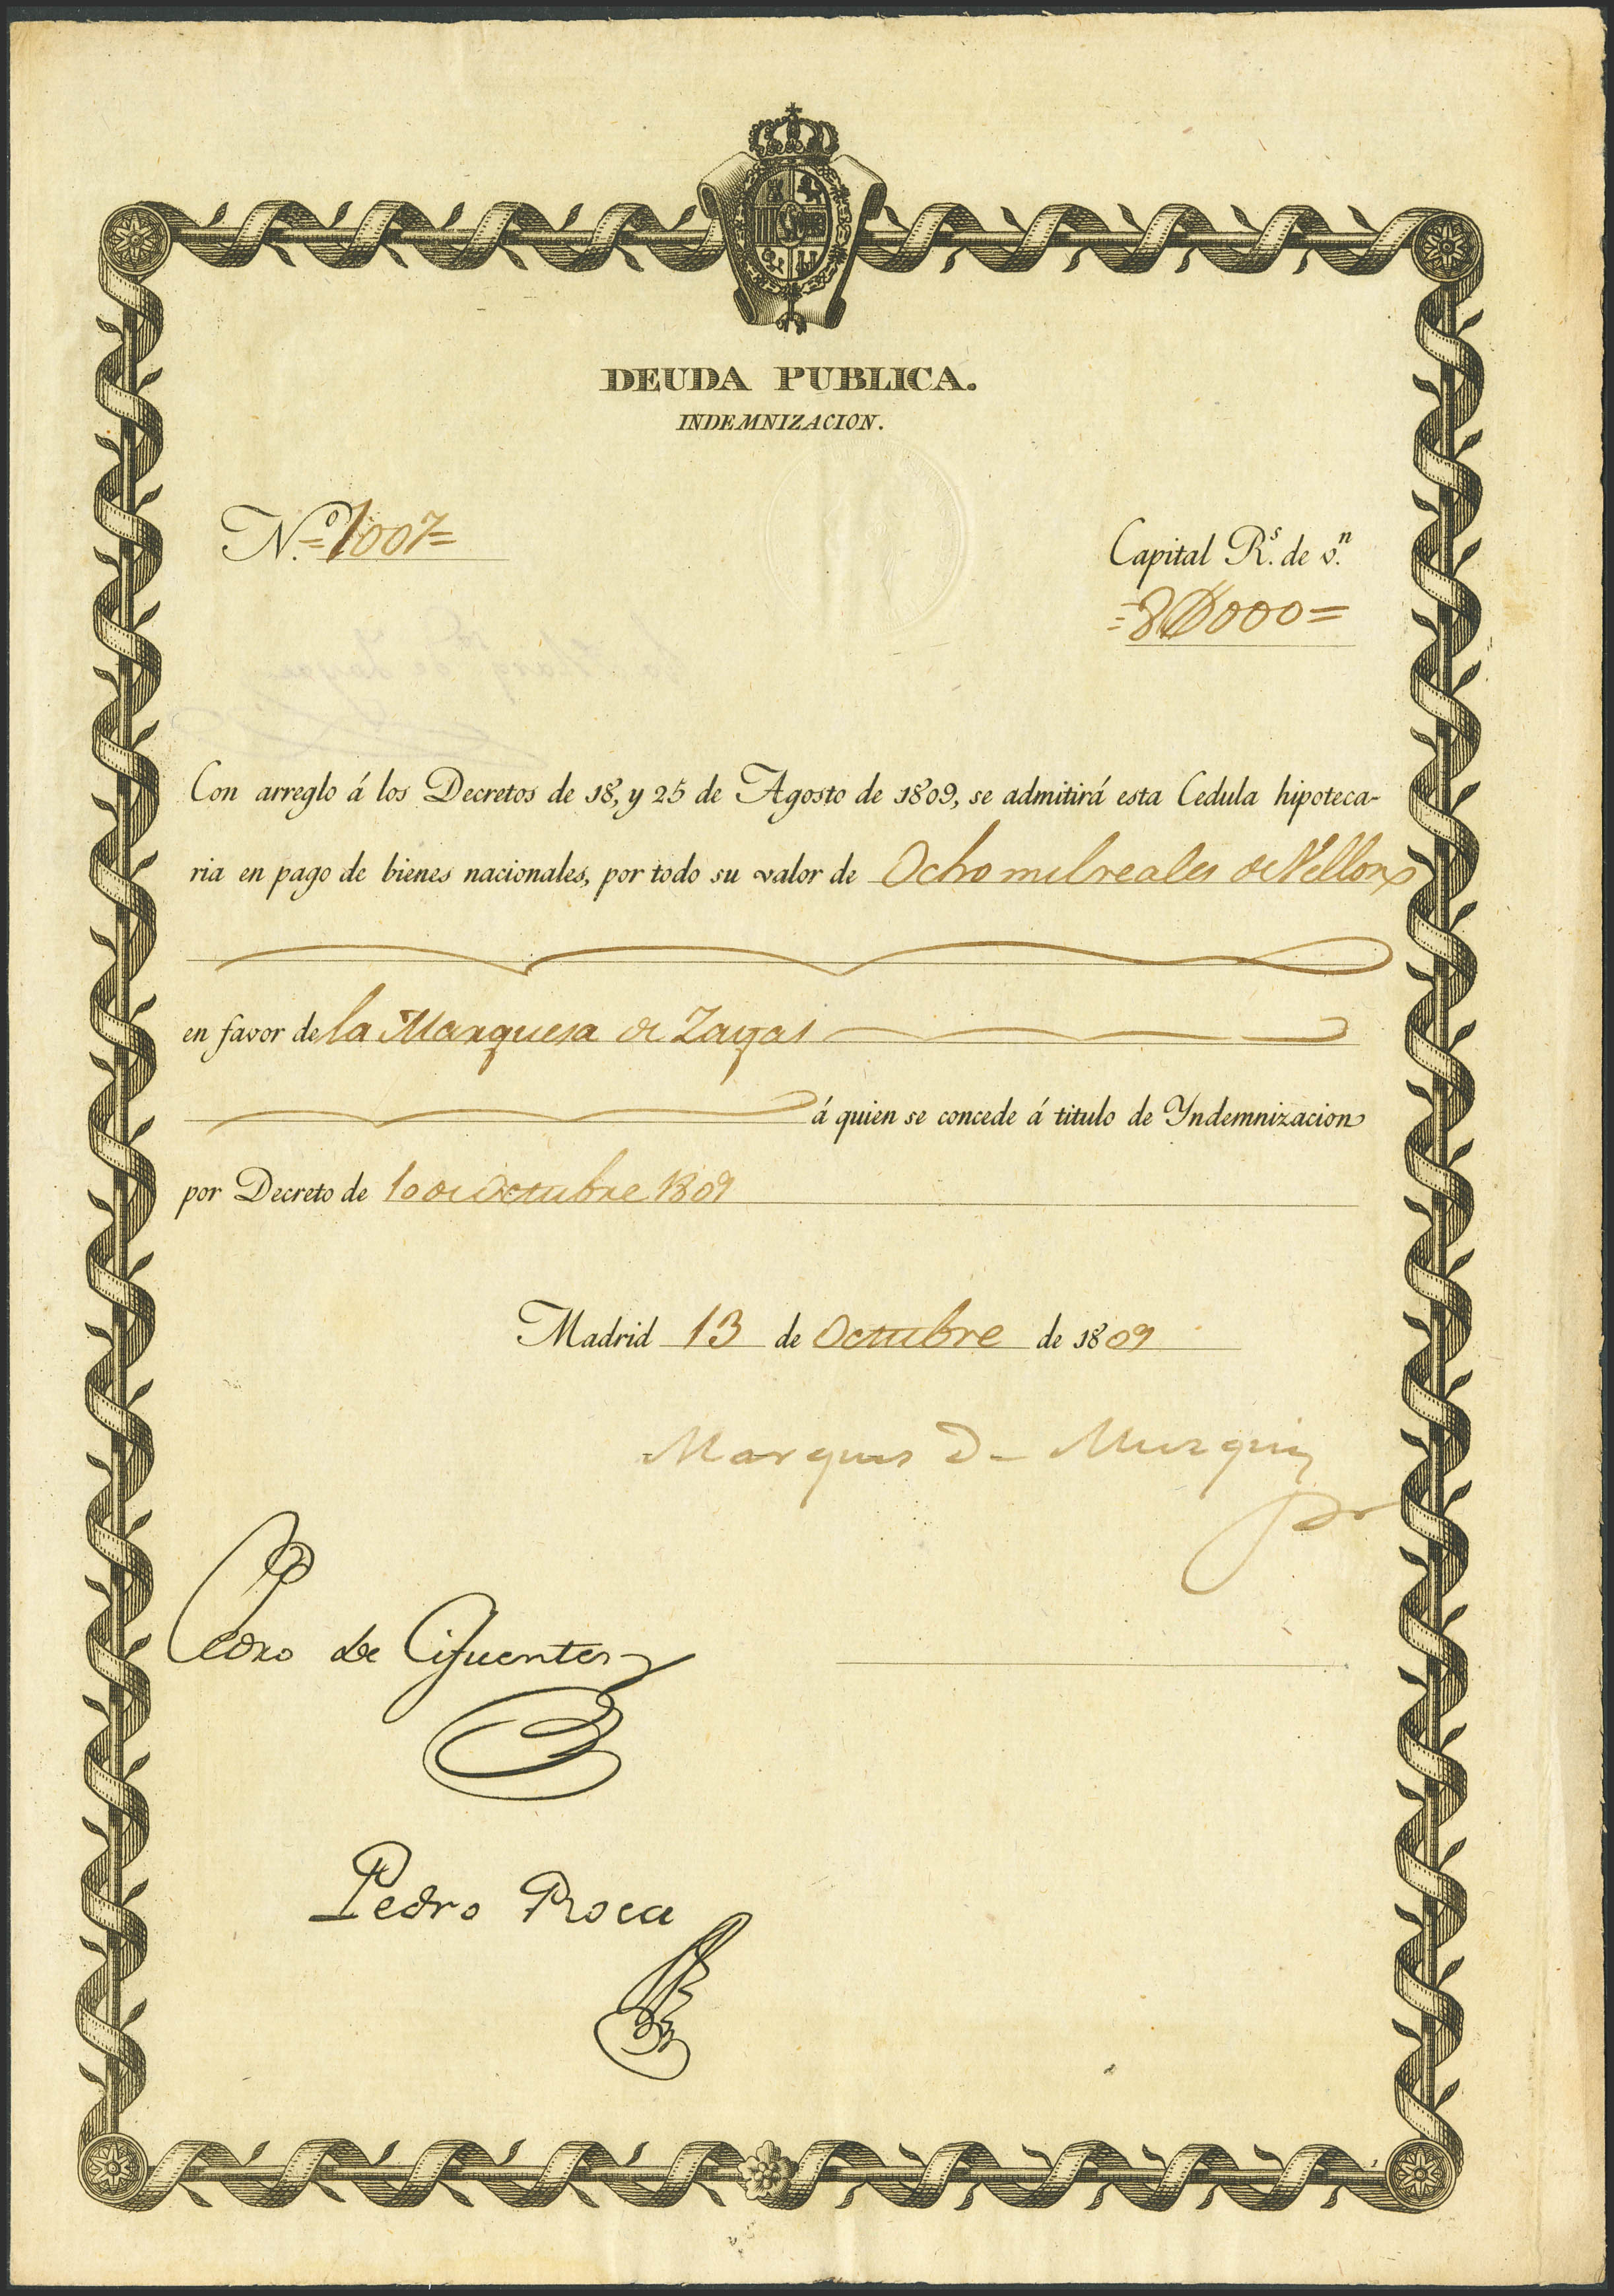 DEUDA PUBLICA.
INDEMNIZACION.
N.º =1007=
Capital R.s de v.n
=8000=
Con arreglo á los Decretos de 18, y 25 de Agosto de 1809, se admitirá esta Cedula hipoteca-
ria en pago de bienes nacionales, por todo su valor de Ocho mil reales de Vellon
en favor de la Marquesa de Zayas
á quien se concede á titulo de Yndemnizacion
por Decreto de 10 de Octubre 1809
Madrid 13 de Octubre de 1809
Marques De
Pedro de Cifuentes
Pedro Roca